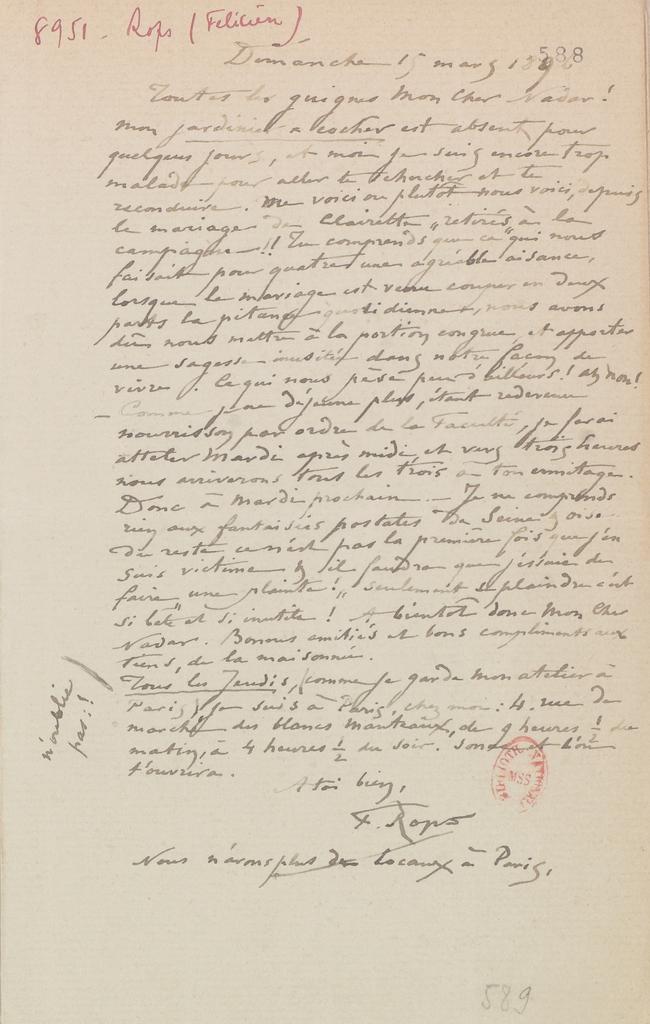 8951. Rops (Félicien)
588
Dimanche 15 mars 189
Toutes les guignes Mon Cher Nadar!
mon jardinier a cocher est absent pour
quelques jours, et moi je suis encore trop
malade pour aller te chercher et te
reconduire. me voici ou plutôt nous voici, depuis
le mariage de Clairette „retirés à la
campagne"!! Tu comprends que ce qui nous
faisait pour quatre une agréable aisance,
lorsque le mariage est venu couper en deux
parts la pitance quotidienne, nous avons
dû nous mettre à la portion congrue et apporter
une sagesse inusitée dans notre façon de
vivre. Ce qui nous pèse peu d'ailleurs! ah non!
— Comme je ne déjeune plus, étant redevenu
nourrisson par ordre de la Faculté, je ferai
atteler Mardi après midi et vers trois heures
nous arriverons tous les trois à ton ermitage.
Donc à Mardi prochain. — Je ne comprends
rien aux fantaisies postales de Seine & oise
du reste ce n'est pas la première fois que j'en
suis victime & il faudra que j'essaie de
faire „une plainte!" seulement se plaindre c'est
si bête et si inutile! A bientôt donc Mon Cher
Nadar. Bonnes amitiés et bons compliments aux
tiens, de la maisonnée.
Tous les Jeudis, (comme je garde mon atelier à
Paris) je suis à Paris, chez moi: 4. rue du
marché des blancs manteaux, de 9 heures ½ du
matin, à 4 heures ½ du soir. Sonne et l'on
t'ouvrira.
n'oublie
pas!!
A toi bien,
F. Rops
Nous n'avons plus de locaux à Paris,
BIBLIOTHÈQUE NATIONALE
MSS
589